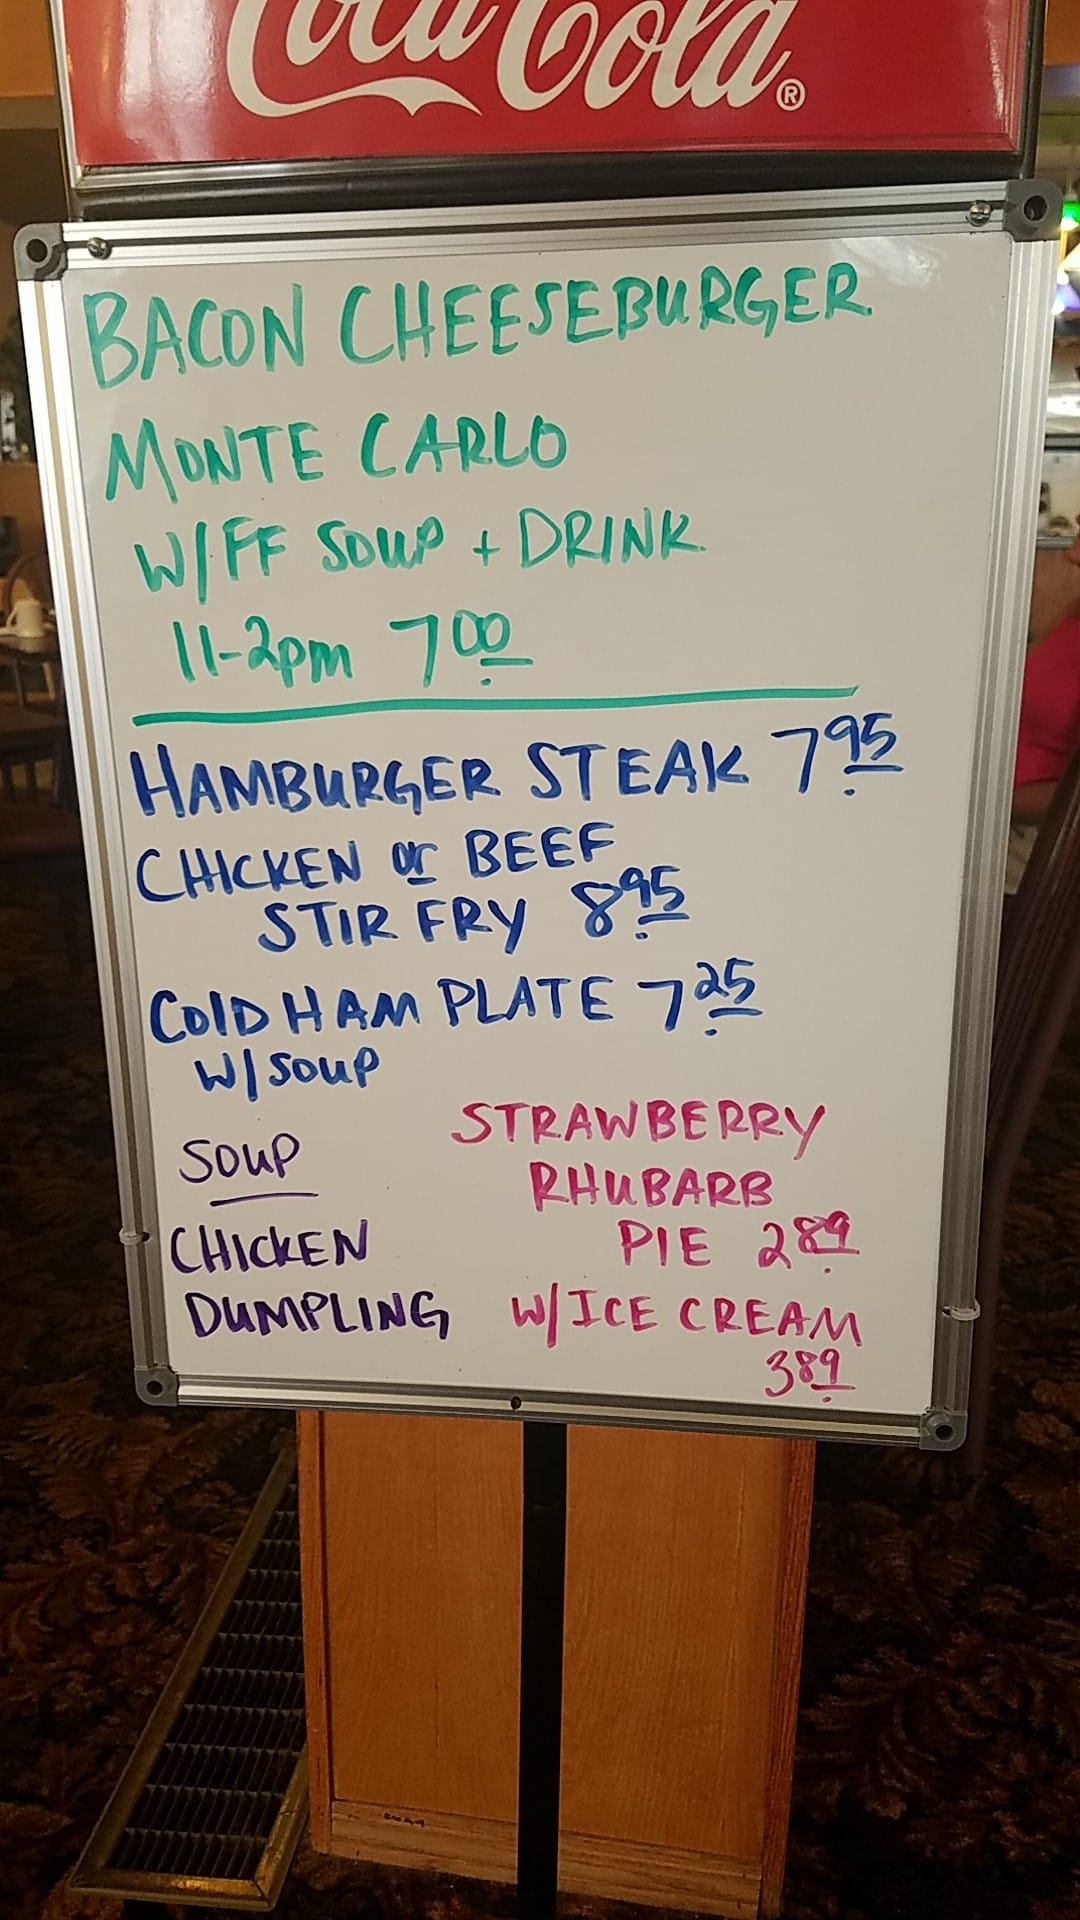 Coca Cola®
BACON CHEESEBURGER
MONTE CARLO
W/FF SOUP + DRINK
11-2pm 7 00
HAMBURGER STEAK 7 95
CHICKEN or BEEF
STIR FRY 8 95
COLD HAM PLATE 7 25
W/SOUP
SOUP
CHICKEN
DUMPLING
STRAWBERRY
RHUBARB
PIE 2 89
W/ICE CREAM
3 89